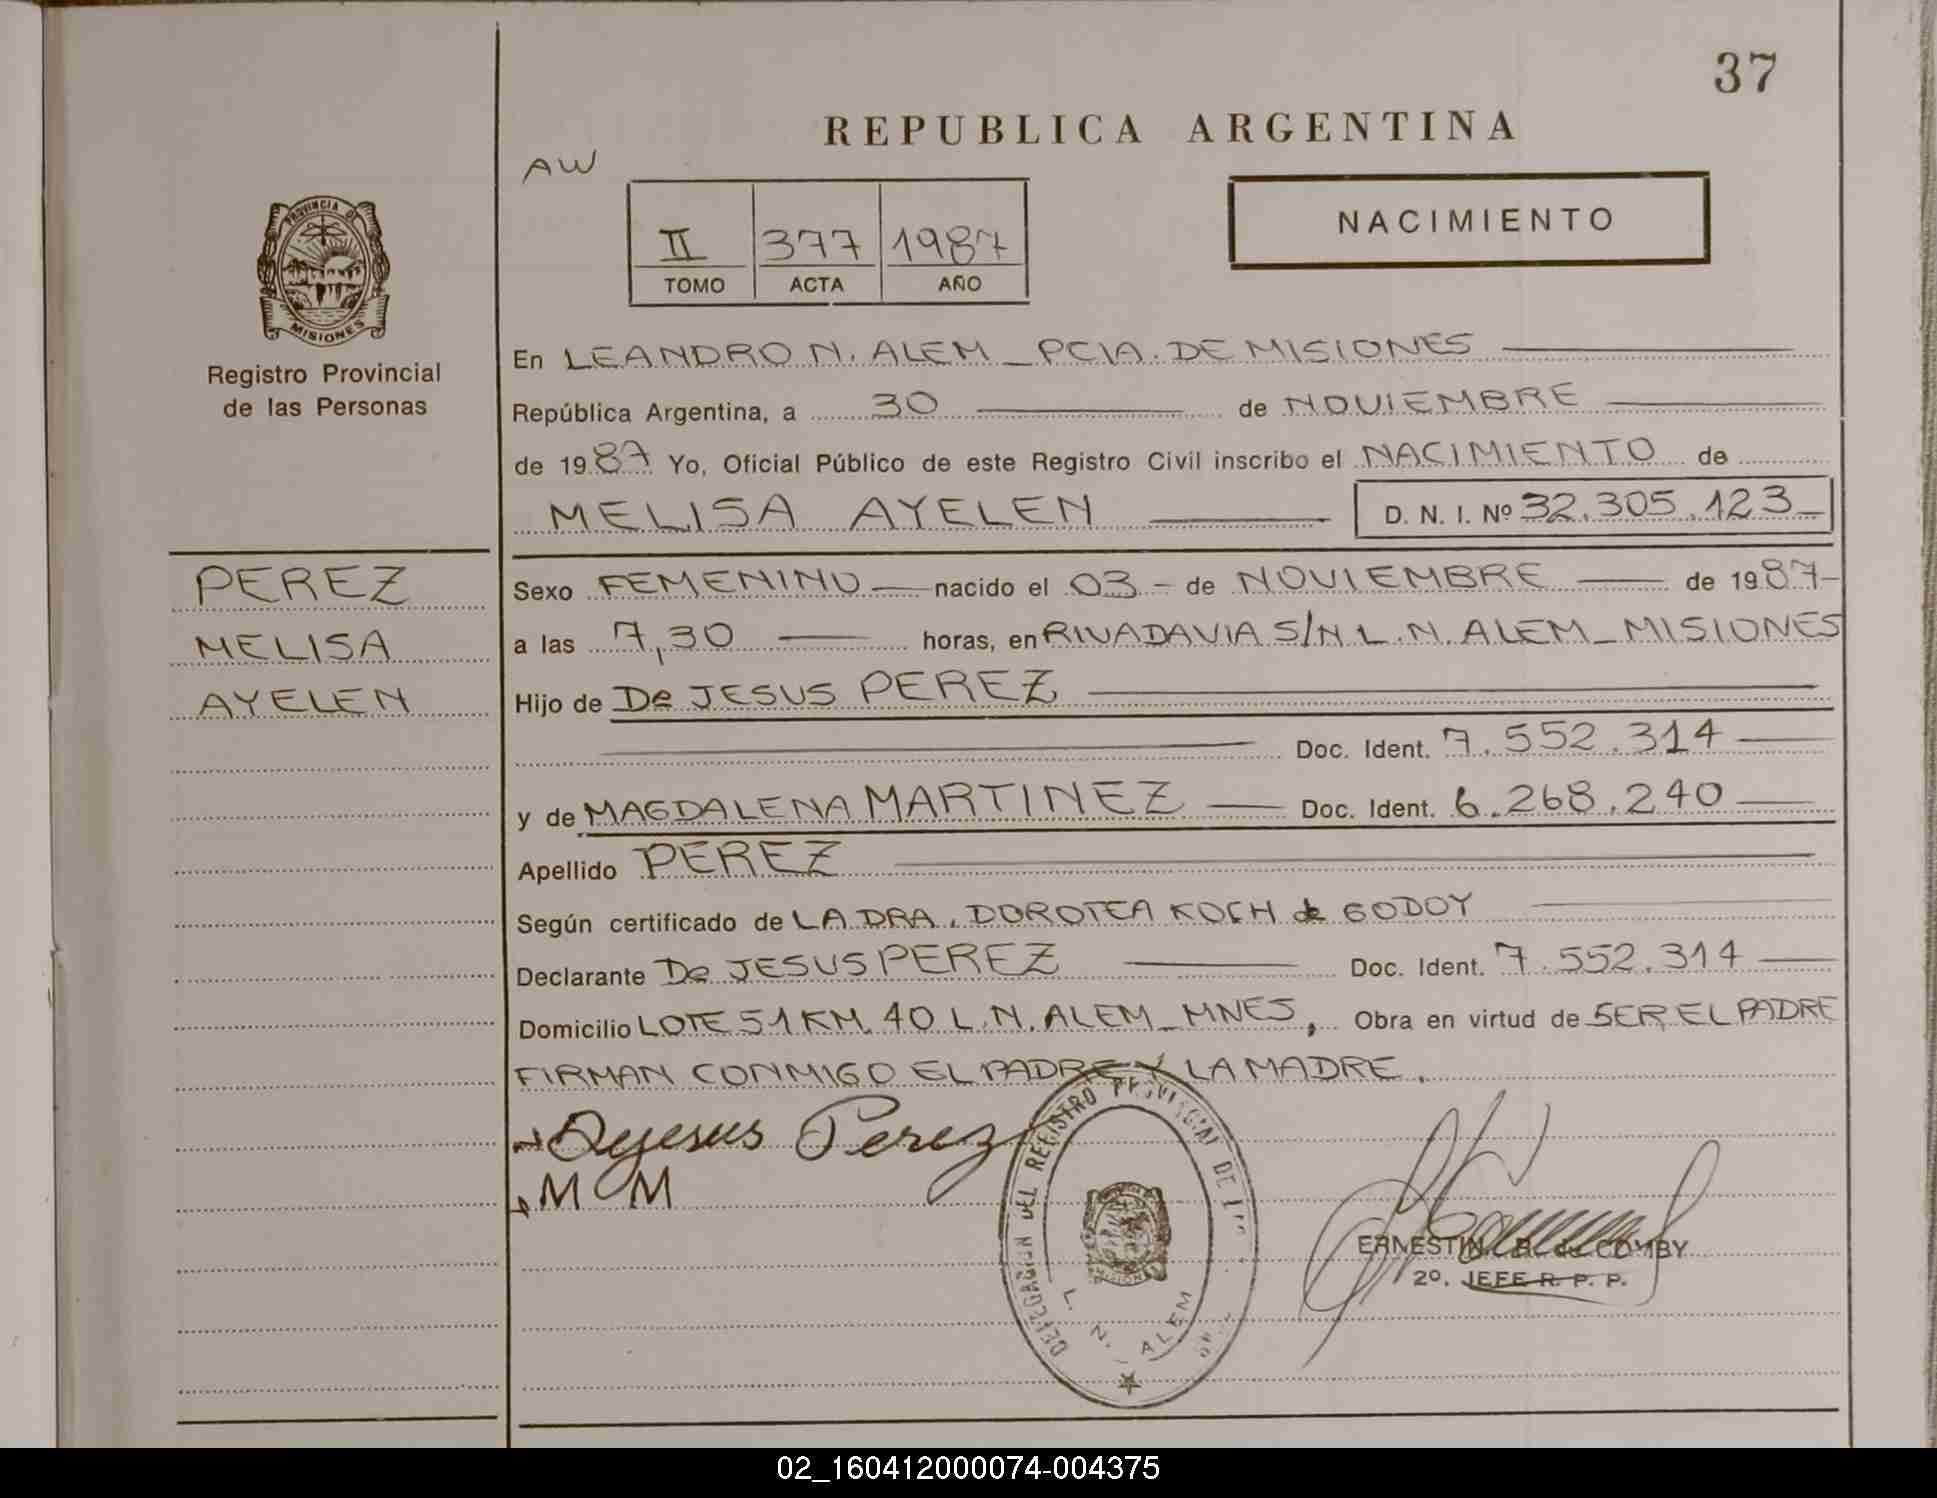 37
REPUBLICA ARGENTINA
AW
PROVINCIA DE
MISIONES
II 377 1987
TOMO ACTA AÑO
NACIMIENTO
Registro Provincial
de las Personas
En LEANDRO N. ALEM _ PCIA. DE MISIONES
República Argentina, a 30 de NOVIEMBRE
de 1987 Yo, Oficial Público de este Registro Civil inscribo el NACIMIENTO de
MELISA AYELEN D. N. I. Nº 32.305.123
PEREZ
MELISA
AYELEN
Sexo FEMENINO nacido el 03 - de NOVIEMBRE de 1987-
a las 7,30 horas, en RIVADAVIA S/N L. N. ALEM _ MISIONES
Hijo de De JESUS PEREZ
Doc. Ident. 7.552.314
y de MAGDALENA MARTINEZ Doc. Ident. 6.268.240
Apellido PEREZ
Según certificado de LA DRA. DOROTEA KOCH de GODOY
Declarante De JESUS PEREZ Doc. Ident. 7.552.314
Domicilio LOTE 51 KM. 40 L. N. ALEM _ MNES, Obra en virtud de SER EL PADRE
FIRMAN CONMIGO EL PADRE Y LA MADRE.
Dejesus Perez
M M
DELEGACION DEL REGISTRO PROVINCIAL DE
L. N. ALEM
B. de COMBY
2º. JEFE R. P. P.
02_160412000074-004375